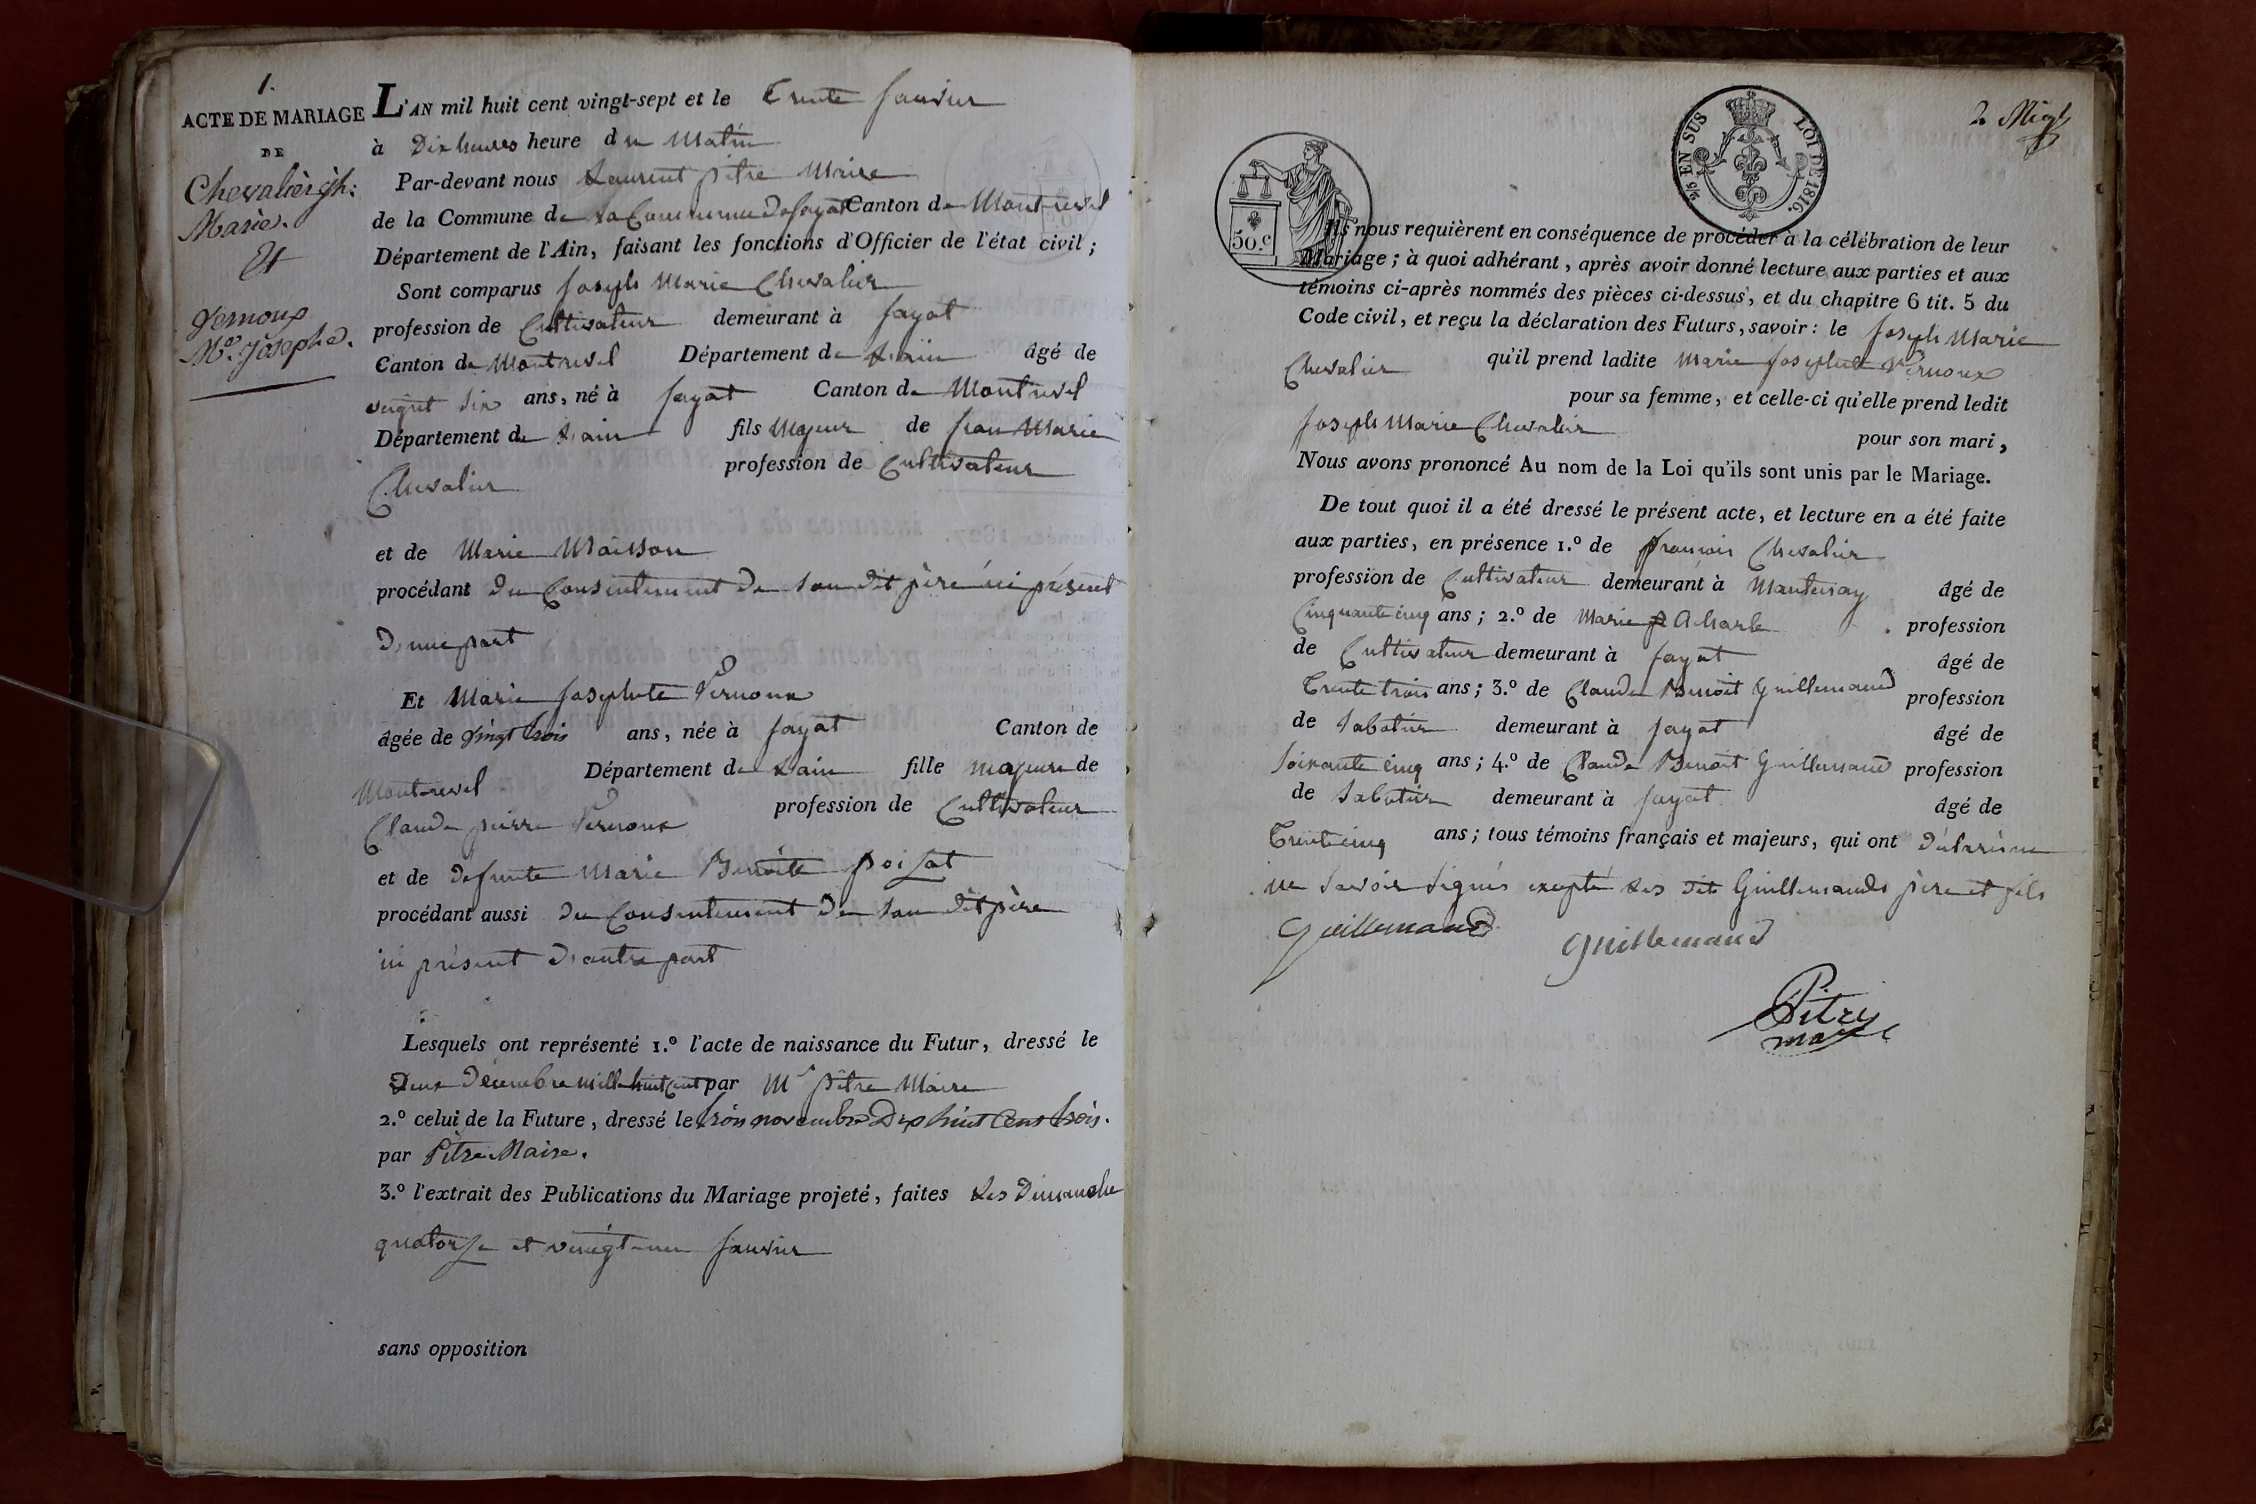 1.
ACTE DE MARIAGE
DE
Chevalier jph:
Marie.
Et
Vernoux
Mie. Josephe.
L'AN mil huit cent vingt-sept et le Trente Janvier
à Dix heures heure du Matin
Par-devant nous Laurent pitre Maire
de la Commune de La Commune de Jayat Canton de Montrevel
Département de l'Ain, faisant les fonctions d'Officier de l'état civil ;
Sont comparus Joseph Marie Chevalier
profession de Cultivateur demeurant à Jayat
Canton de Montrevel Département de Lain âgé de
veingt six ans, né à Jayat Canton de Montrevel
Département de Lain fils Majeur de Jean Marie
Chevalier profession de Cultivateur
et de Marie Moisson
procédant du Consentement de Son dit père ici présent
D'une part
Et Marie Josephete Vernoux
âgée de vingt trois ans, née à Jayat Canton de
Montrevel Département de Lain fille majeure de
Claude pierre Vernoux profession de Cultivateur
et de defunte Marie Benoite poisat
procédant aussi du Consentement de Son dit père
ici présent D'autre part
Lesquels ont représenté 1.º l'acte de naissance du Futur, dressé le
Deux Décembre mille huit Cent par Mr pitre Maire
2.º celui de la Future, dressé le trois novembre Dix huit Cent trois.
par Pitre Maire.
3.º l'extrait des Publications du Mariage projeté, faites Les Dimanche
quatorze et veingt un Janvier
sans opposition
2/5 EN SUS
LOI DE 1816.
50.c
Ils nous requièrent en conséquence de procéder à la célébration de leur
Mariage ; à quoi adhérant, après avoir donné lecture aux parties et aux
témoins ci-après nommés des pièces ci-dessus, et du chapitre 6 tit. 5 du
Code civil, et reçu la déclaration des Futurs, savoir : le Joseph Marie
Chevalier qu'il prend ladite Marie Josephete Vernoux
pour sa femme, et celle-ci qu'elle prend ledit
Joseph Marie Chevalier pour son mari,
Nous avons prononcé Au nom de la Loi qu'ils sont unis par le Mariage.
De tout quoi il a été dressé le présent acte, et lecture en a été faite
aux parties, en présence 1.º de francois Chevalier
profession de Cultivateur demeurant à Mantenay âgé de
Cinquante cinq ans ; 2.º de Marie profession
de Cultivateur demeurant à Jayat âgé de
Trente trois ans ; 3.º de Claude Benoit Guillemaud profession
de Sabotier demeurant à Jayat âgé de
Soixante cinq ans ; 4.º de Claude Benoit Guillemaud profession
de Sabotier demeurant à Jayat âgé de
Trente cinq ans ; tous témoins français et majeurs, qui ont
ne Savoir Signés excepté Les dits Guillemauds père et fils
Guillemaud
guillemaud
Pitre
maire